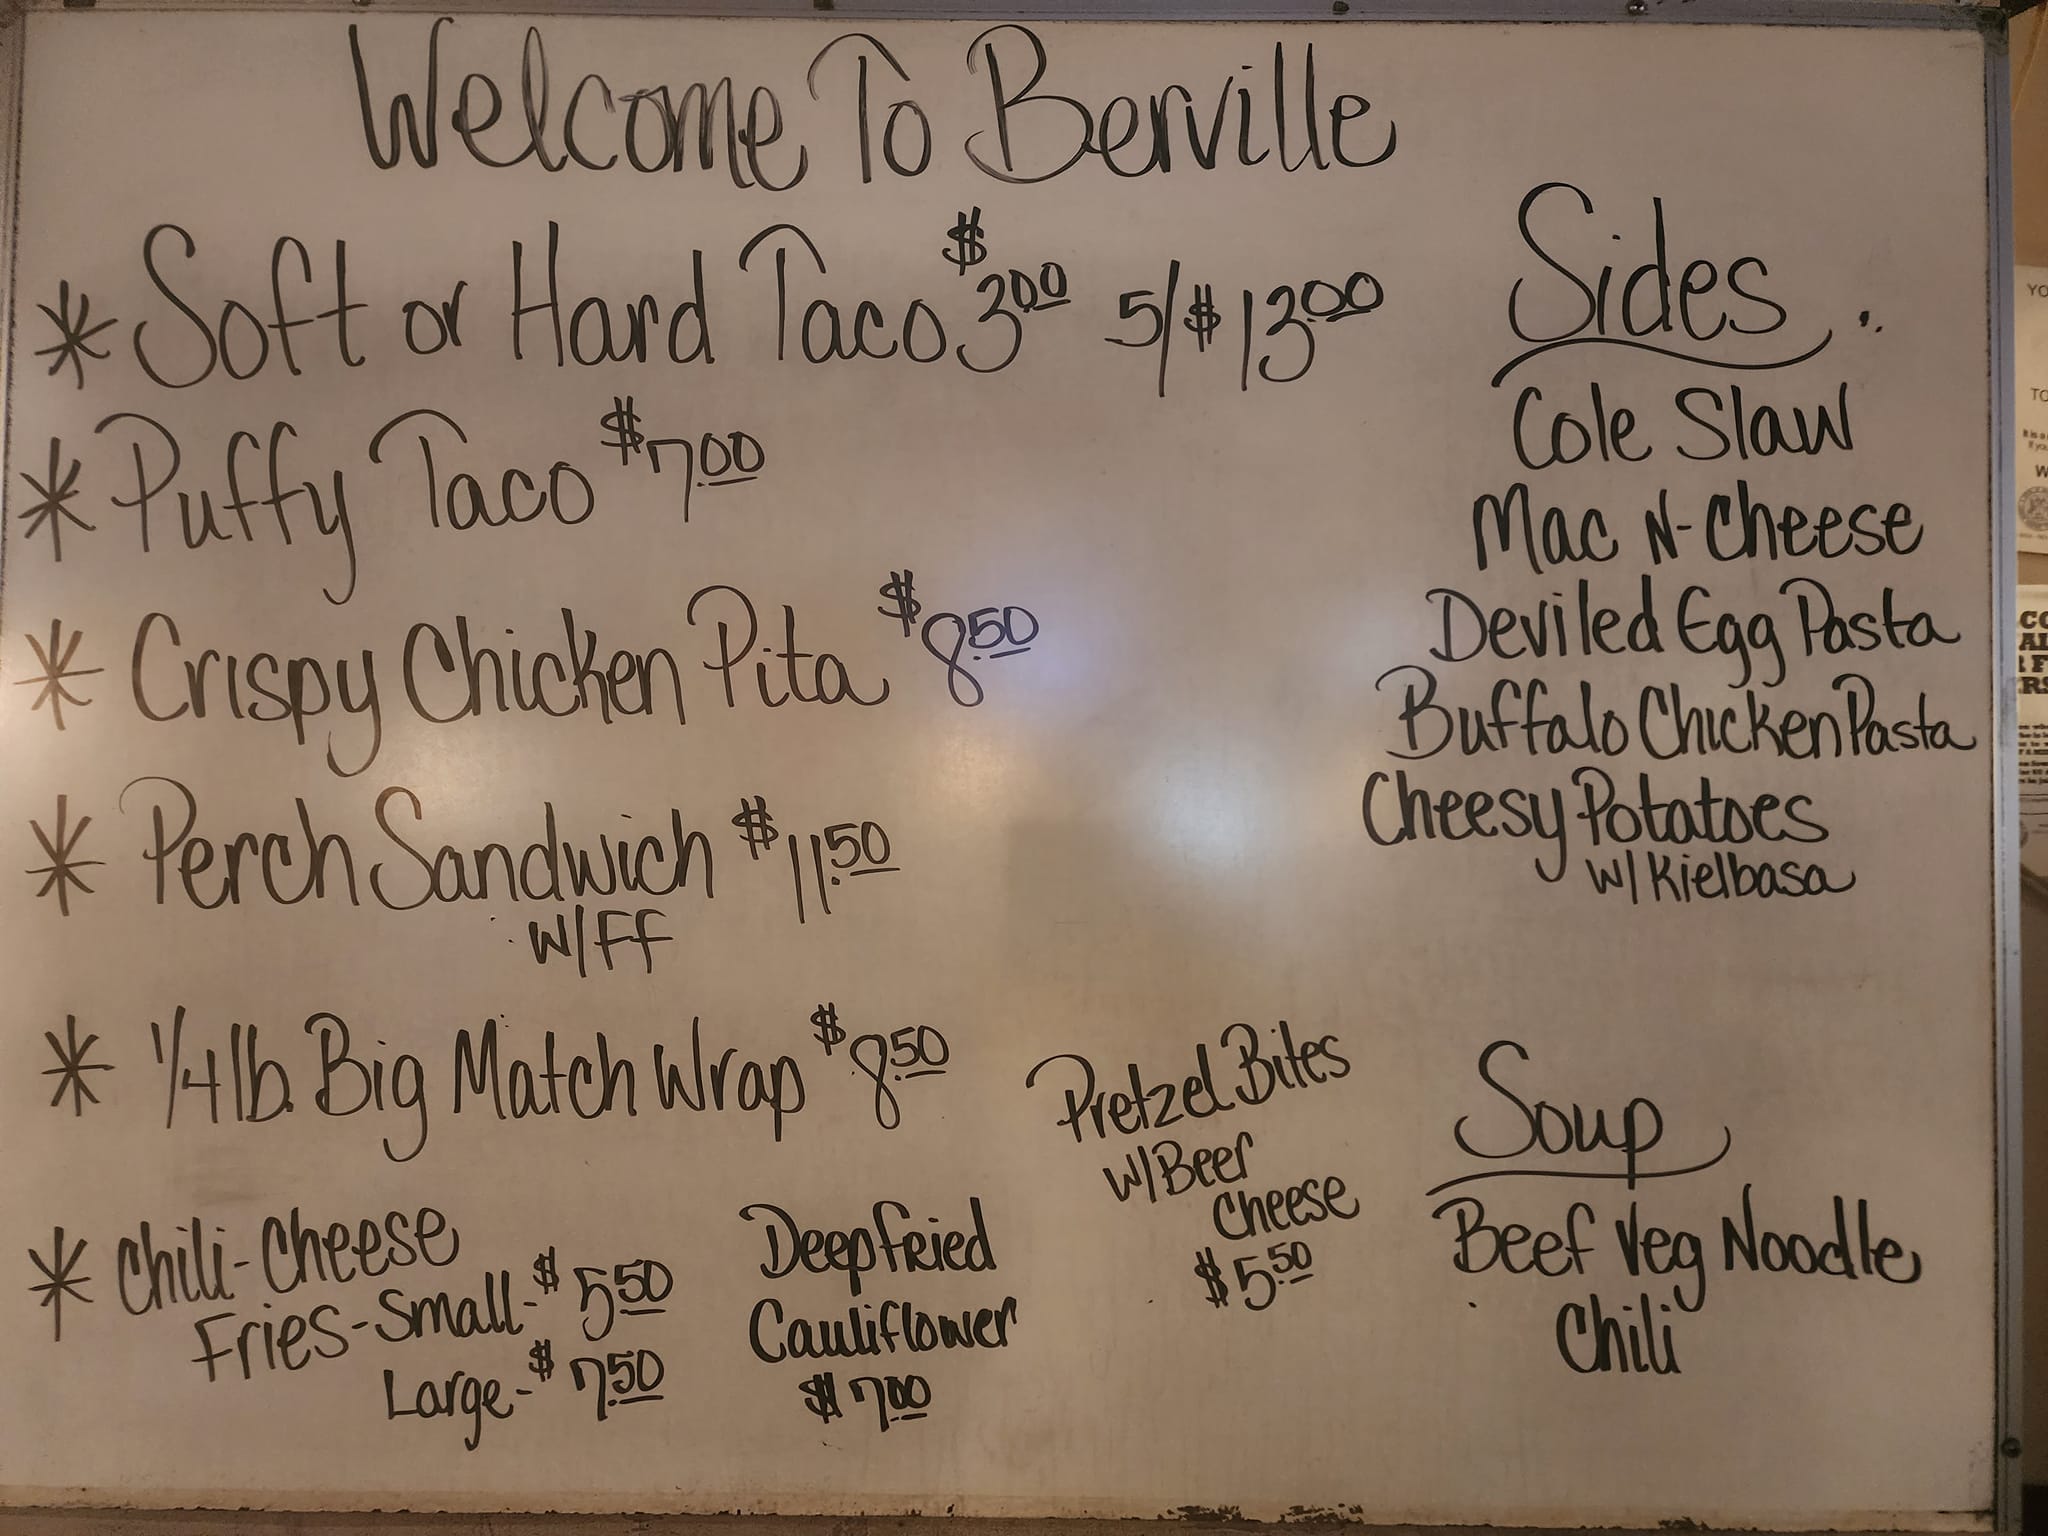 Welcome To Berville
* Soft or Hard Taco $3.00 5/$13.00
* Puffy Taco $7.00
* Crispy Chicken Pita $8.50
* Perch Sandwich $11.50
W/FF
* 1/4 lb. Big Match Wrap $8.50
* Chili-Cheese
Fries-Small-$5.50
Large-$7.50
Deepfried
Cauliflower
$7.00
Pretzel Bites
W/Beer
Cheese
$5.50
Sides
Cole Slaw
Mac N-Cheese
Deviled Egg Pasta
Buffalo Chicken Pasta
Cheesy Potatoes
W/Kielbasa
Soup
Beef Veg Noodle
Chili
YO
TO